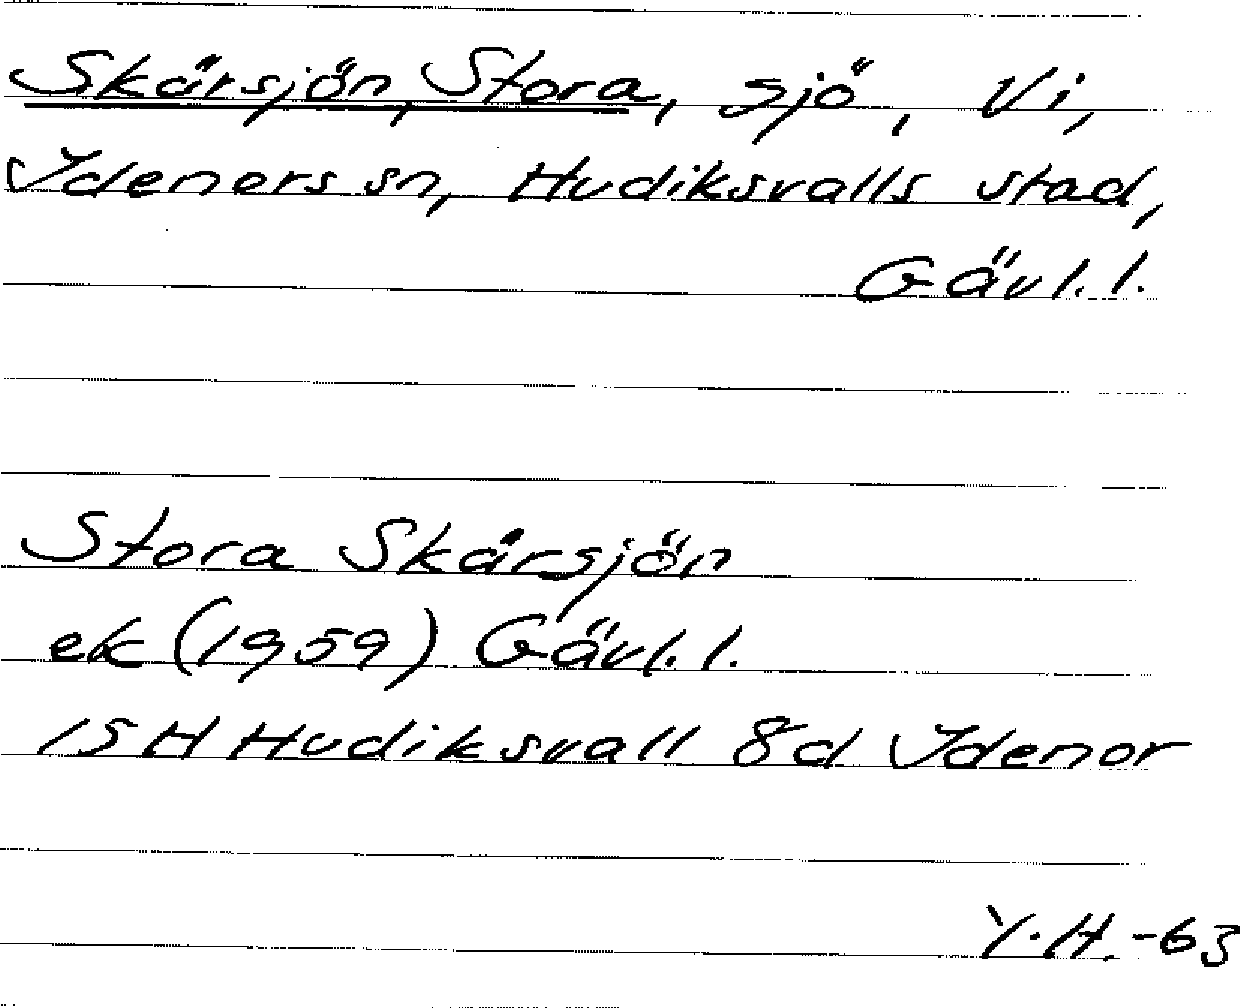 Skärsjön, Stora, sjö, Vi,
Idenors sn, Hudiksvalls stad,
Gävl. l.
Stora Skärsjön
ek (1959) Gävl. l.
15H Hudiksvall 8d Idenor
Y.H.-63